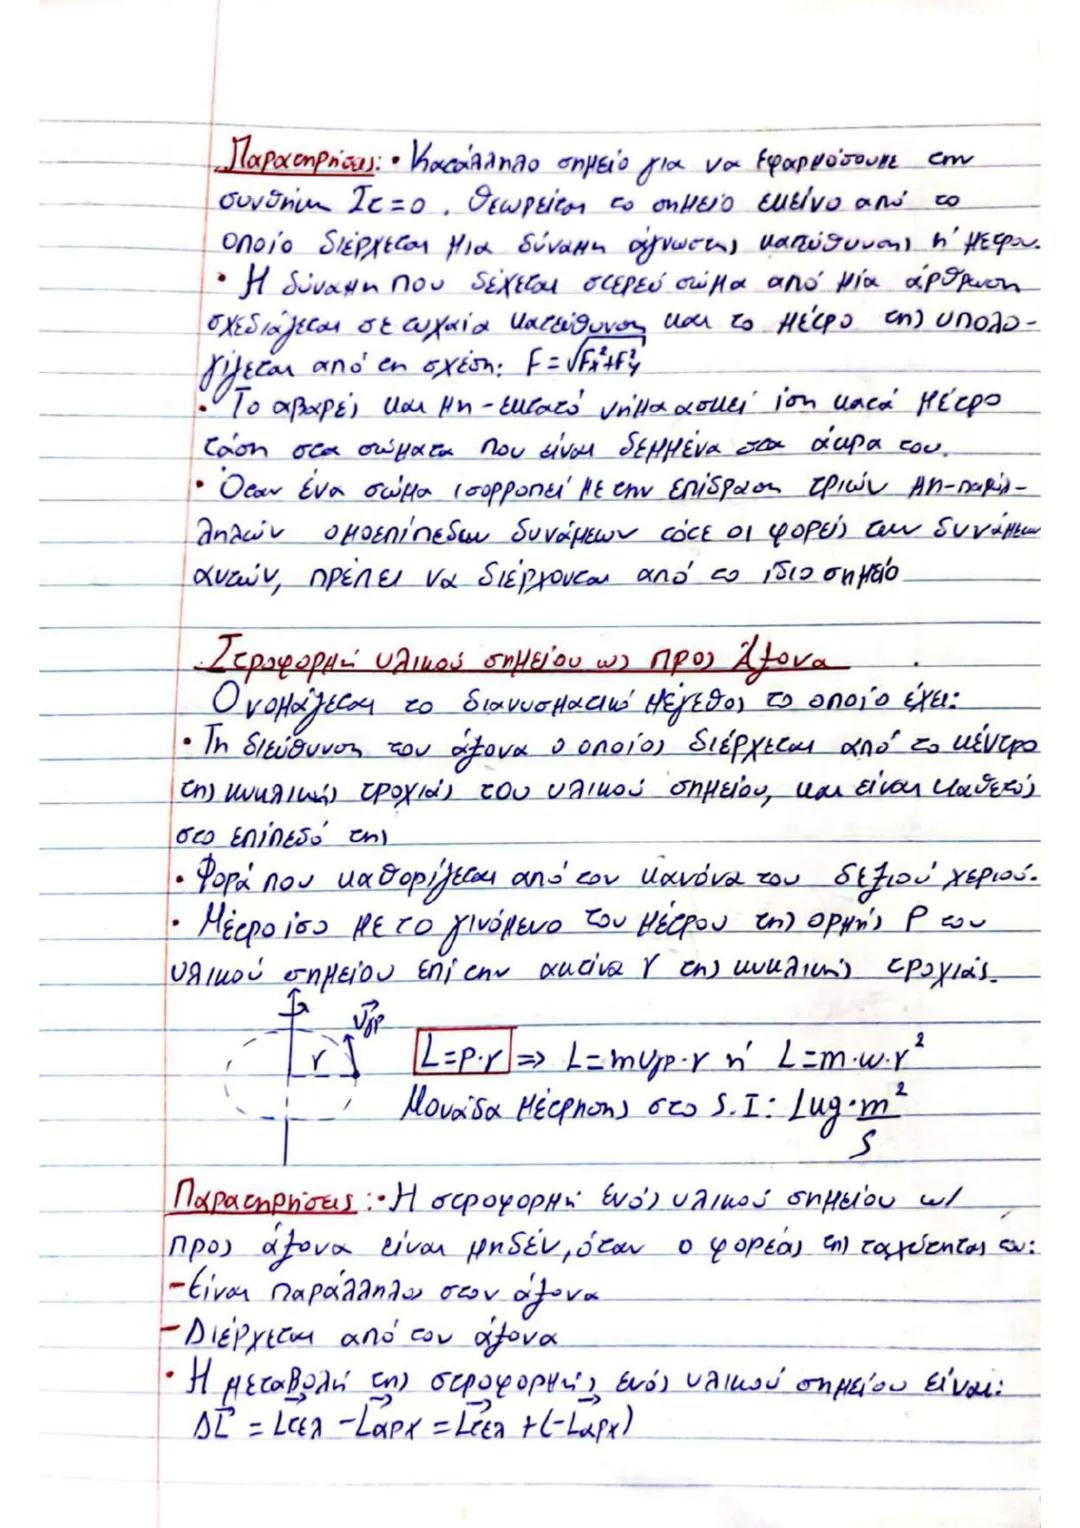 Παρατηρήσεις: • Κατάλληλο σημείο για να εφαρμόσουμε την
συνθήκη Στ=0, θεωρείται το σημείο εκείνο από το
οποίο διέρχεται μια δύναμη άγνωστης κατεύθυνσης ή μέτρου.
• Η δύναμη που δέχεται στερεό σώμα από μία άρθρωση
σχεδιάζεται σε τυχαία κατεύθυνση και το μέτρο της υπολο-
γίζεται από τη σχέση: F=√Fx²+Fy²
• Το αβαρές και μη-εκτατό νήμα ασκεί ίση κατά μέτρο
τάση στα σώματα που είναι δεμμένα στα άκρα του.
• Όταν ένα σώμα ισορροπεί με την επίδραση τριών μη-παράλ-
ληλών ομοεπίπεδων δυνάμεων τότε οι φορείς των δυνάμεων
αυτών, πρέπει να διέρχονται από το ίδιο σημείο
Στροφορμή υλικού σημείου ως προς Άξονα
Ονομάζεται το διανυσματικό μέγεθος το οποίο έχει:
• Τη διεύθυνση του άξονα ο οποίος διέρχεται από το κέντρο
της κυκλικής τροχιάς του υλικού σημείου, και είναι κάθετος
στο επίπεδό της
• Φορά που καθορίζεται από τον κανόνα του δεξιού χεριού.
• Μέτρο ίσο με το γινόμενο του μέτρου της ορμής P του
υλικού σημείου επί την ακτίνα r της κυκλικής τροχιάς.
r υγρ
L=p·r ⇒ L=mυγρ·r ή L=m·ω·r²
Μονάδα μέτρησης στο S.I: 1kg·m²/s
Παρατηρήσεις: • Η στροφορμή ενός υλικού σημείου ως
προς άξονα είναι μηδέν, όταν ο φορέας της ταχύτητας του:
-Είναι παράλληλος στον άξονα
-Διέρχεται από τον άξονα
• Η μεταβολή της στροφορμής ενός υλικού σημείου είναι:
ΔL = Lτελ - Lαρχ = Lτελ + (-Lαρχ)